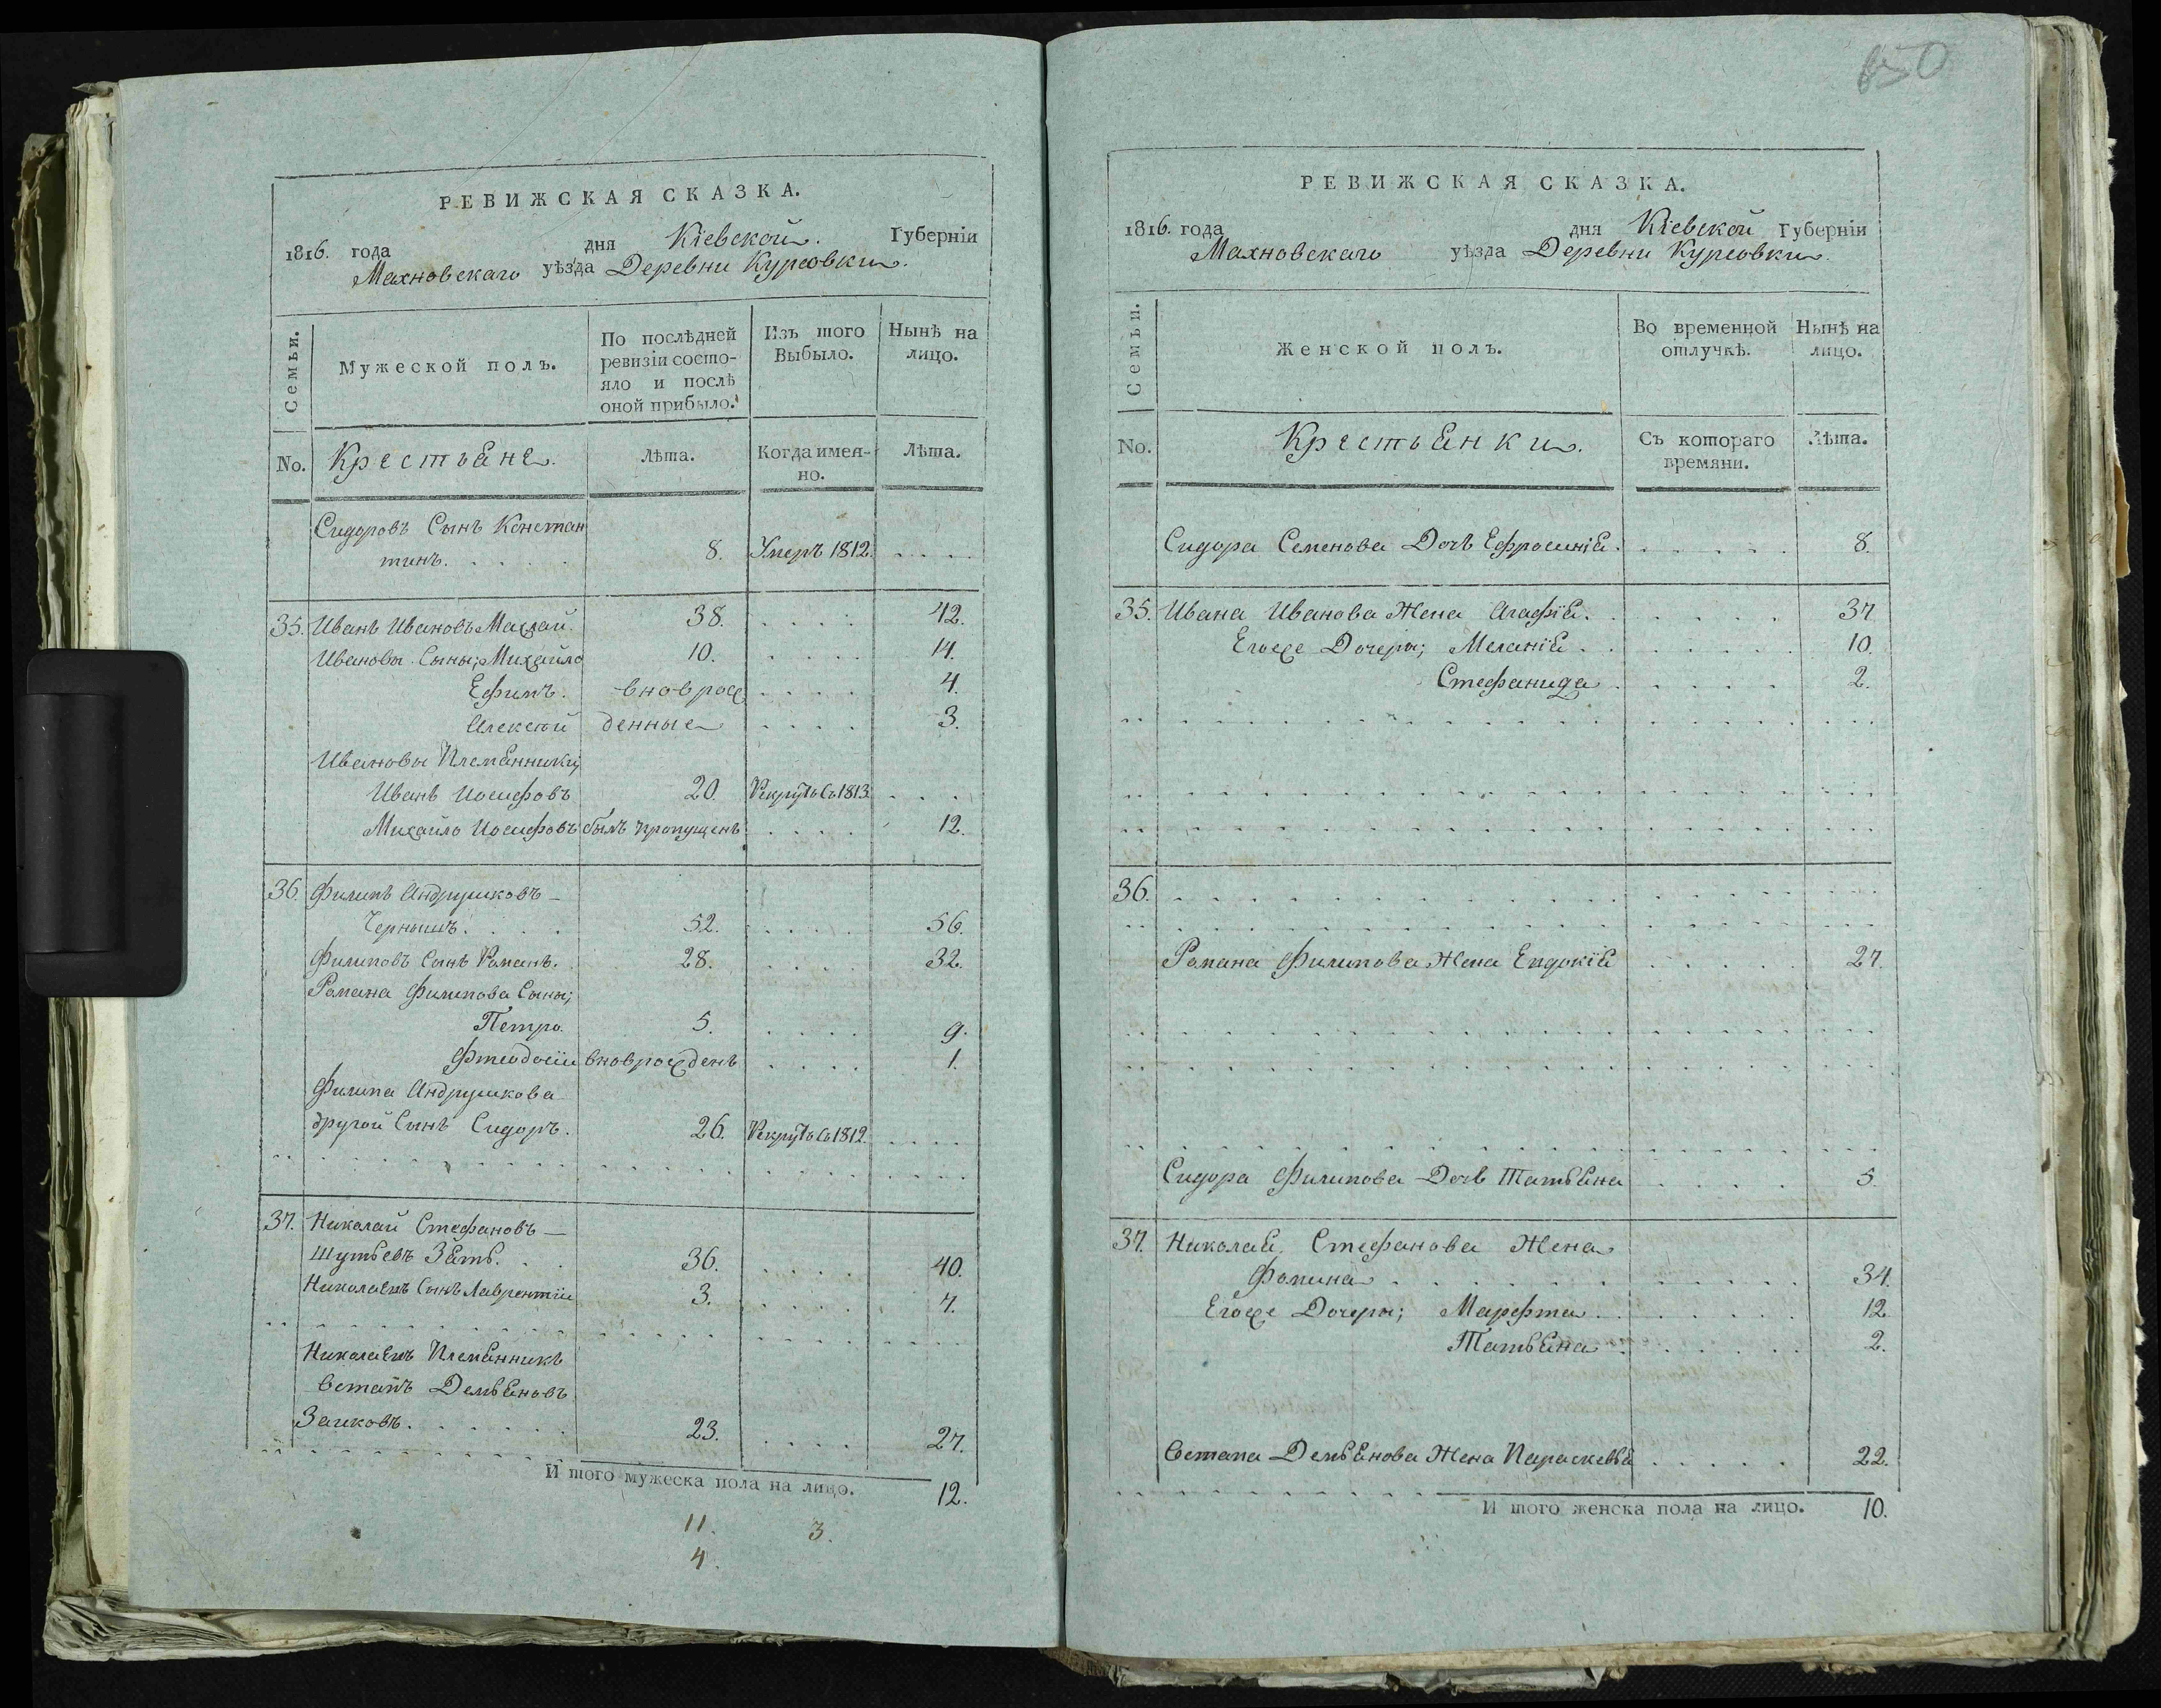 РЕВИЖСКАЯ СКАЗКА.
1816. года дня Кіевской. Губерніи
Махновскаго уѣзда Деревни Курсовки.
Семьи.
Мужеской полъ.
По послѣдней ревизіи состо-
яло и послѣ
оной прибыло.
Изъ того
Выбыло.
Нынѣ на
лицо.
No. Крестьяне. Лѣта. Когда имен-
но. Лѣта.
Сидоровъ Сынъ Констан
тинъ. 8. Умеръ 1812.
35. Иванъ Ивановъ 38. 42.
Ивановы Сыны; Михайло 10. 14.
Ефимъ. вноврож 4.
Алексѣй денные 3.
Ивановы Племянники;
Иванъ Иосифовъ 20. Рекрутъ Съ 1813.
Михайло Иосифовъ былъ пропущенъ 12.
36. Филипъ Андрушковъ
Чернышъ. 52. 56.
Филиповъ Сынъ Романъ. 28. 32.
Романа Филипова Сыны;
Петро. 5. 9.
Фтеодосіи вноврожденъ 1.
Филипа Андрушкова
другой Сынъ Сидоръ. 26. Рекрутъ Съ 1812.
37. Николай Стефановъ —
Шутьевъ Зять. 36. 40.
Николаевъ Сынъ Лаврентіи 3. 7.
Николаевъ Племянникъ
Остапъ Демьяновъ
Заиковъ. 23. 27.
И того мужеска пола на лицо. 12.
11. 3.
4.
650
РЕВИЖСКАЯ СКАЗКА.
1816. года дня Кіевской Губерніи
Махновскаго уѣзда Деревни Курсовки.
Семьи.
Женской полъ.
Во временной
отлучкѣ.
Нынѣ на
лицо.
No. Крестьянки. Съ котораго
времяни. Лѣта.
Сидора Семенова Дочь Ефросинія. 8.
35. Ивана Иванова Жена Агафія. 37
Егоже Дочери; Меланія 10.
Стефанида 2.
36.
Романа Филипова Жена Евдокія 27.
Сидора Филипова Дочь Татьяна 5.
37. Николая Стефанова Жена
Фомина 34.
Егоже Дочери; Марфта 12
Татьяна 2.
Остапа Демьянова Жена Параскевья 22.
И того женска пола на лицо. 10.